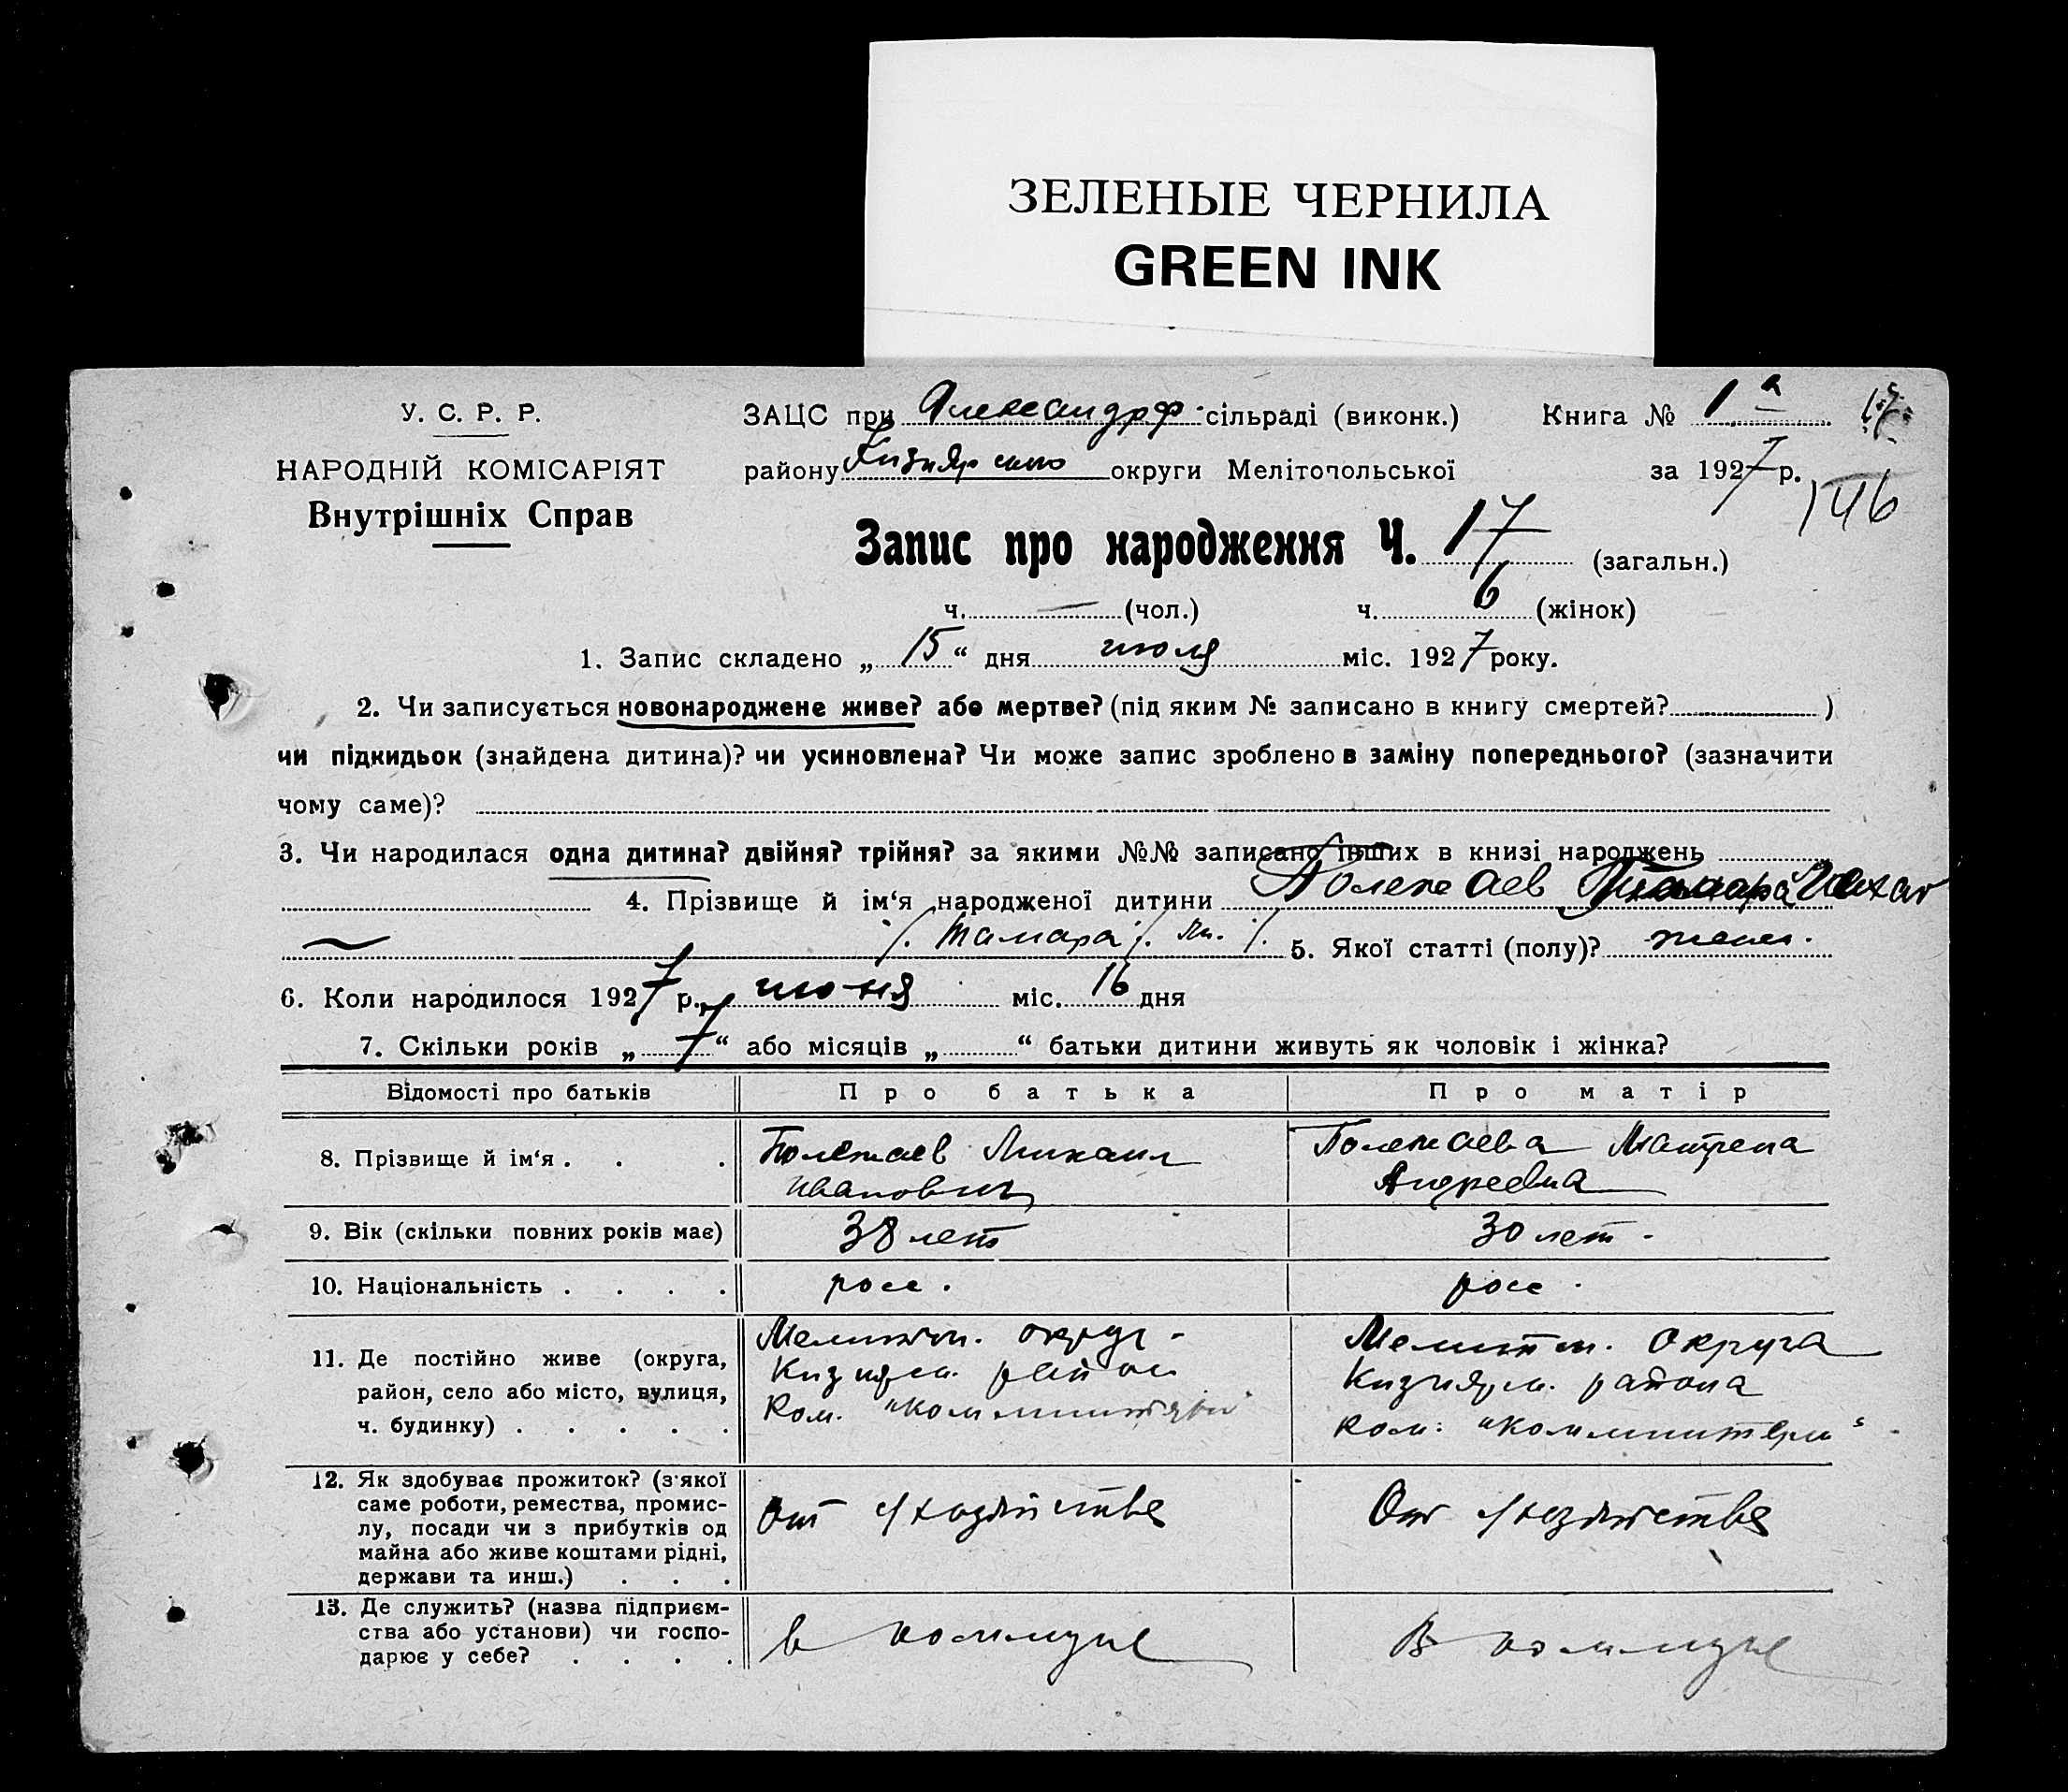 ЗЕЛЕНЫЕ ЧЕРНИЛА
GREEN INK
У. С. Р. Р.
НАРОДНІЙ КОМІСАРІЯТ
Внутрішніх Справ
ЗАЦС при Александрф. сільраді (виконк.) Книга № 1 а
району Кизиярского округи Мелітопольської за 1927 р.
146
Запис про народження Ч. 17 (загальн.)
ч. — (чол.) ч. 6 (жінок)
1. Запис складено „ 15 “ дня июля міс. 1927 року.
2. Чи записується новонароджене живе? або мертве? (під яким № записано в книгу смертей? )
чи підкидьок (знайдена дитина)? чи усиновлена? Чи може запис зроблено в заміну попереднього? (зазначити
чому саме)?
3. Чи народилася одна дитина? двійня? трійня? за якими №№ записано інших в книзі народжень
4. Прізвище й ім‘я народженої дитини Полежаев Тамара
/. Тамара /. Ми. /. 5. Якої статті (полу)? женс.
6. Коли народилося 1927 р., июня міс. 16 дня
7. Скільки років „ 7 “ або місяців „ “ батьки дитини живуть як чоловік і жінка?
Відомості про батьків Про батька Про матір
8. Прізвище й ім‘я . . . Полежаев Михаил Иванович Полежаева Матрена Андреевна
9. Вік (скільки повних років має) 38 лет 30 лет.
10. Національність . . . . росс. росс.
11. Де постійно живе (округа,
район, село або місто, вулиця,
ч. будинку) . . . . .
Мелитоп. округ.
Кизиярск. район
Ком. "Коминтерн"
Мелитоп. округа
Кизиярск. района
Ком: "Коминтерн"
12. Як здобуває прожиток? (з'якої
саме роботи, ремества, промис-
лу, посади чи з прибутків од
майна або живе коштами рідні,
держави та инш.) . . .
От с/хозяйства
От с/хозяйства
13. Де служить? (назва підприєм-
ства або установи) чи госпо-
дарює у себе? . . . .
в коммуне
В коммуне